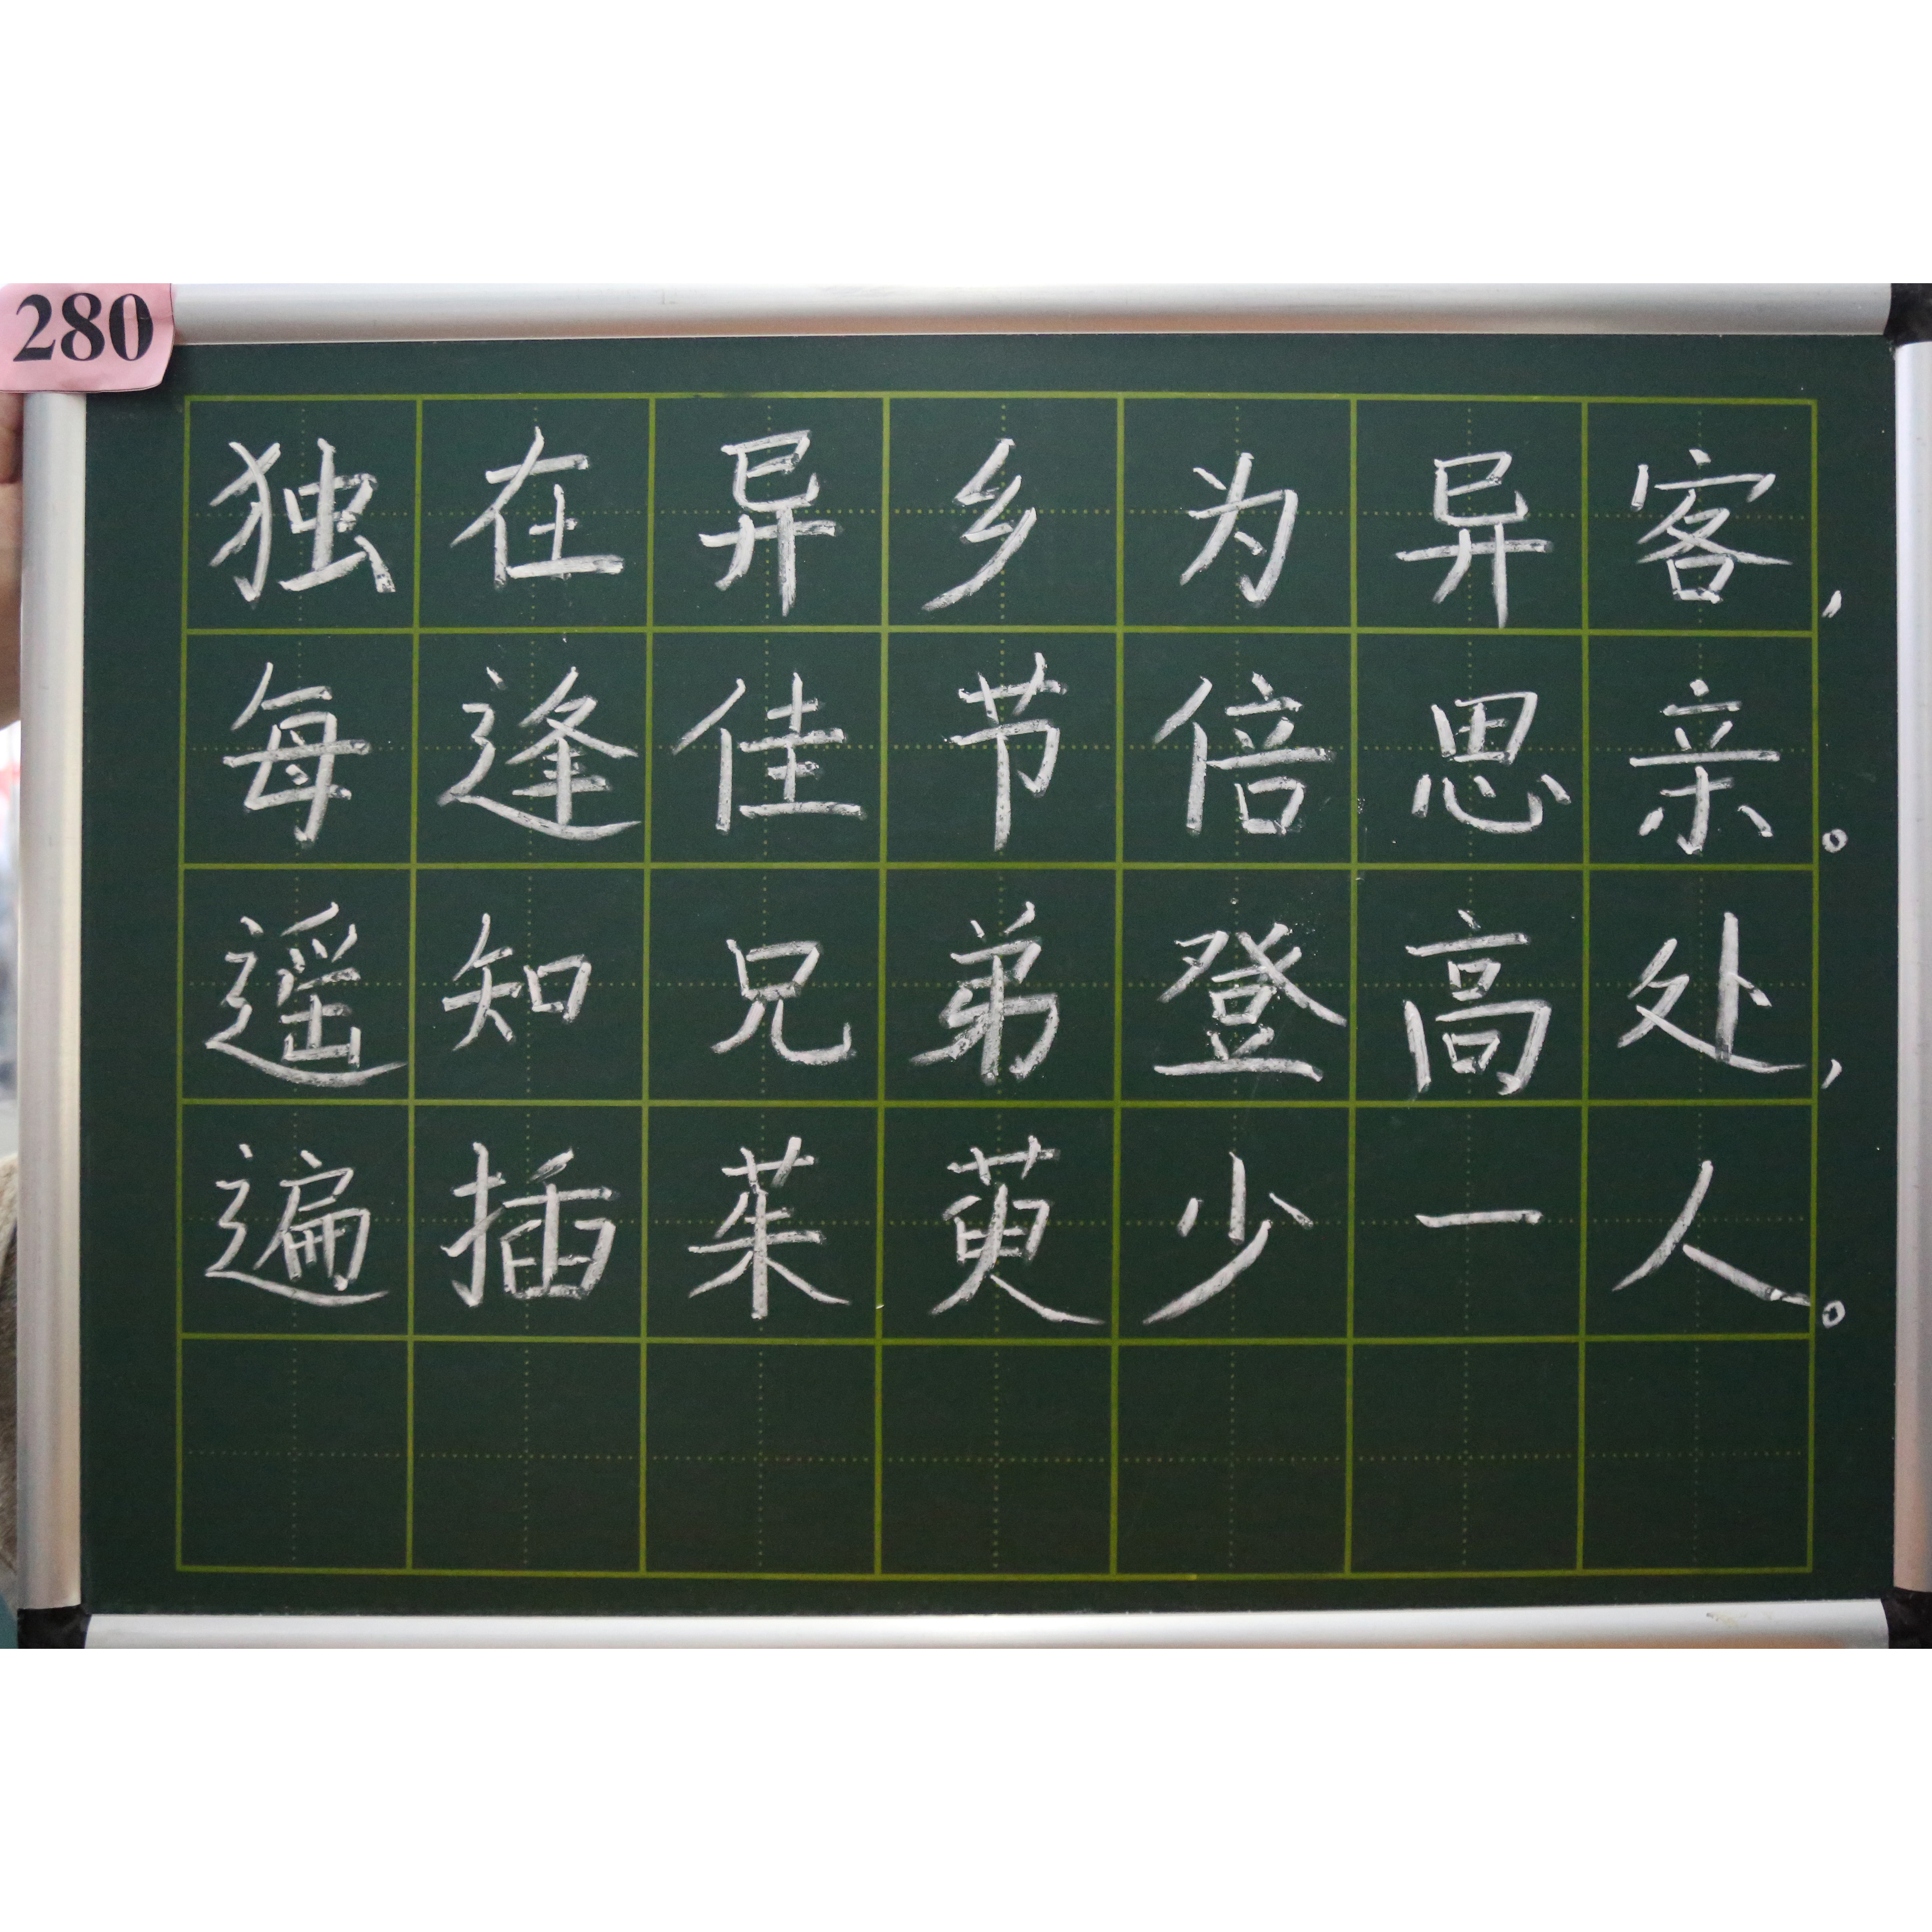 280
独在异乡为异客，
每逢佳节倍思亲。
遥知兄弟登高处，
遍插茱萸少一人。